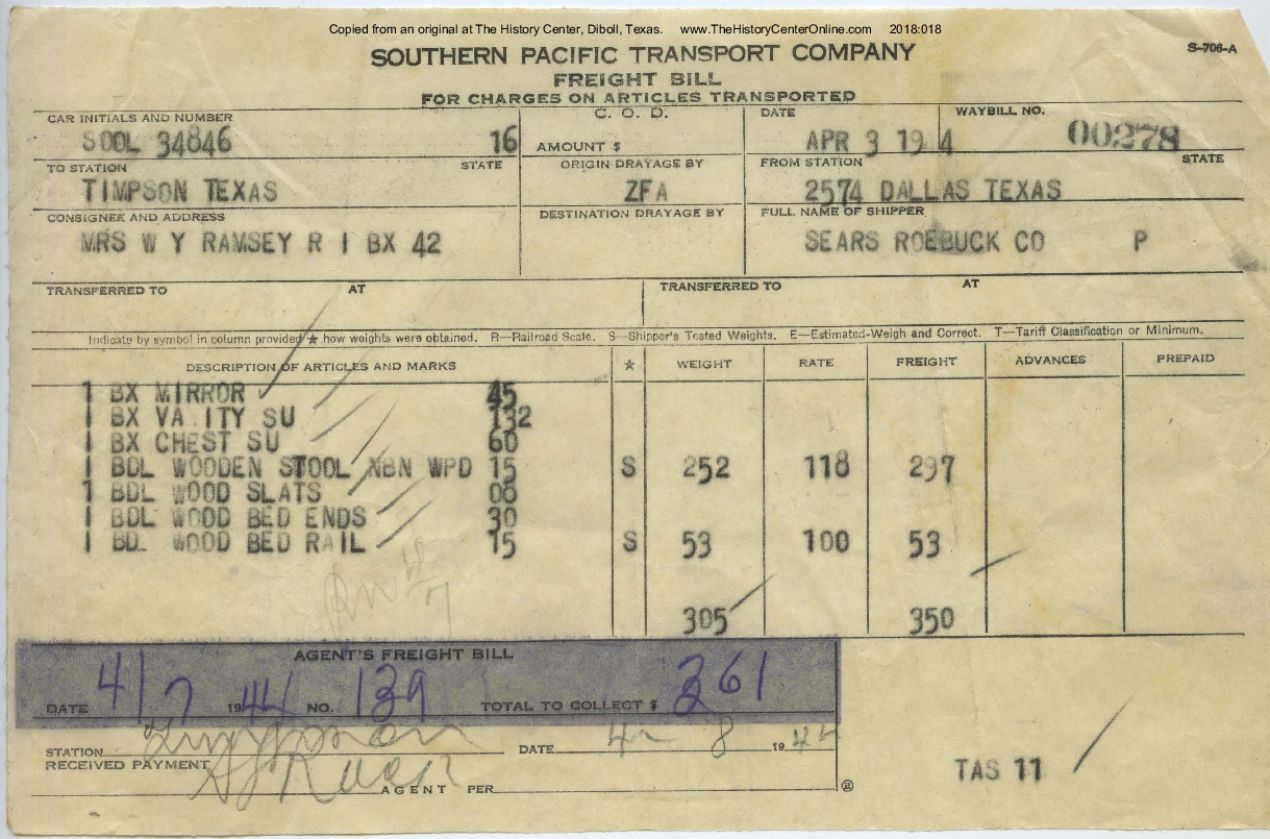 Copied from an original at The History Center, Diboll, Texas. www.TheHistoryCenterOnline.com 2018:018
SOUTHERN PACIFIC TRANSPORT COMPANY
S-706-A
FREIGHT BILL
FOR CHARGES ON ARTICLES TRANSPORTED
CAR INITIALS AND NUMBER C. O. D. DATE WAYBILL NO.
SOOL 34846 16 AMOUNT $ APR 3 19 4 00278
TO STATION STATE ORIGIN DRAYAGE BY FROM STATION STATE
TIMPSON TEXAS ZFA 2574 DALLAS TEXAS
CONSIGNEE AND ADDRESS DESTINATION DRAYAGE BY FULL NAME OF SHIPPER
MRS W Y RAMSEY R I BX 42 SEARS ROEBUCK CO P
TRANSFERRED TO AT TRANSFERRED TO AT
Indicate by symbol in column provided ★ how weights were obtained. R—Railroad Scale. S—Shipper's Tested Weights. E—Estimated-Weigh and Correct. T—Tariff Classification or Minimum.
DESCRIPTION OF ARTICLES AND MARKS ★ WEIGHT RATE FREIGHT ADVANCES PREPAID
1 BX MIRROR 45
1 BX VA ITY SU 132
1 BX CHEST SU 60
1 BDL WOODEN STOOL NBN WPD 15 S 252 118 297
1 BDL WOOD SLATS 08
1 BDL WOOD BED ENDS 30
1 BDL WOOD BED RAIL 15 S 53 100 53
305 350
AGENT'S FREIGHT BILL
DATE 4/7 1944 NO. 139 TOTAL TO COLLECT $ 361
STATION Timpson DATE 4-8 1944
RECEIVED PAYMENT
AGENT PER
TAS 11